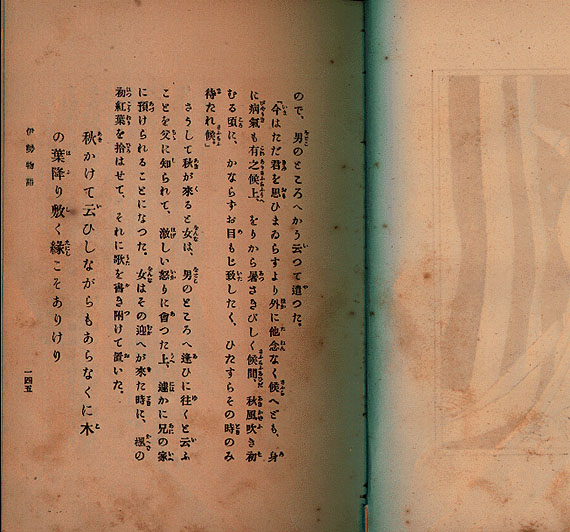 ので、男のところへかう云つて遣つた。
「今はただ君を思ひまゐらすより外に他念なく候へども、身
に病氣も有之候上、をりから暑さきびしく候間、秋風吹き初
むる頃に、かならずお目もじ致したく、ひたすらその時のみ
待たれ候」
さうして秋が來ると女は、男のところへ逢ひに往くと云ふ
ことを父に知られて、激しい怒りに會つた上、遽かに兄の家
に預けられることになつた。女はその迎へが來た時に、楓の
初紅葉を拾はせて、それに歌を書き附けて置いた。
秋かけて云ひしながらもあらなくに木
の葉降り敷く緣こそありけり
伊勢物語
一四五